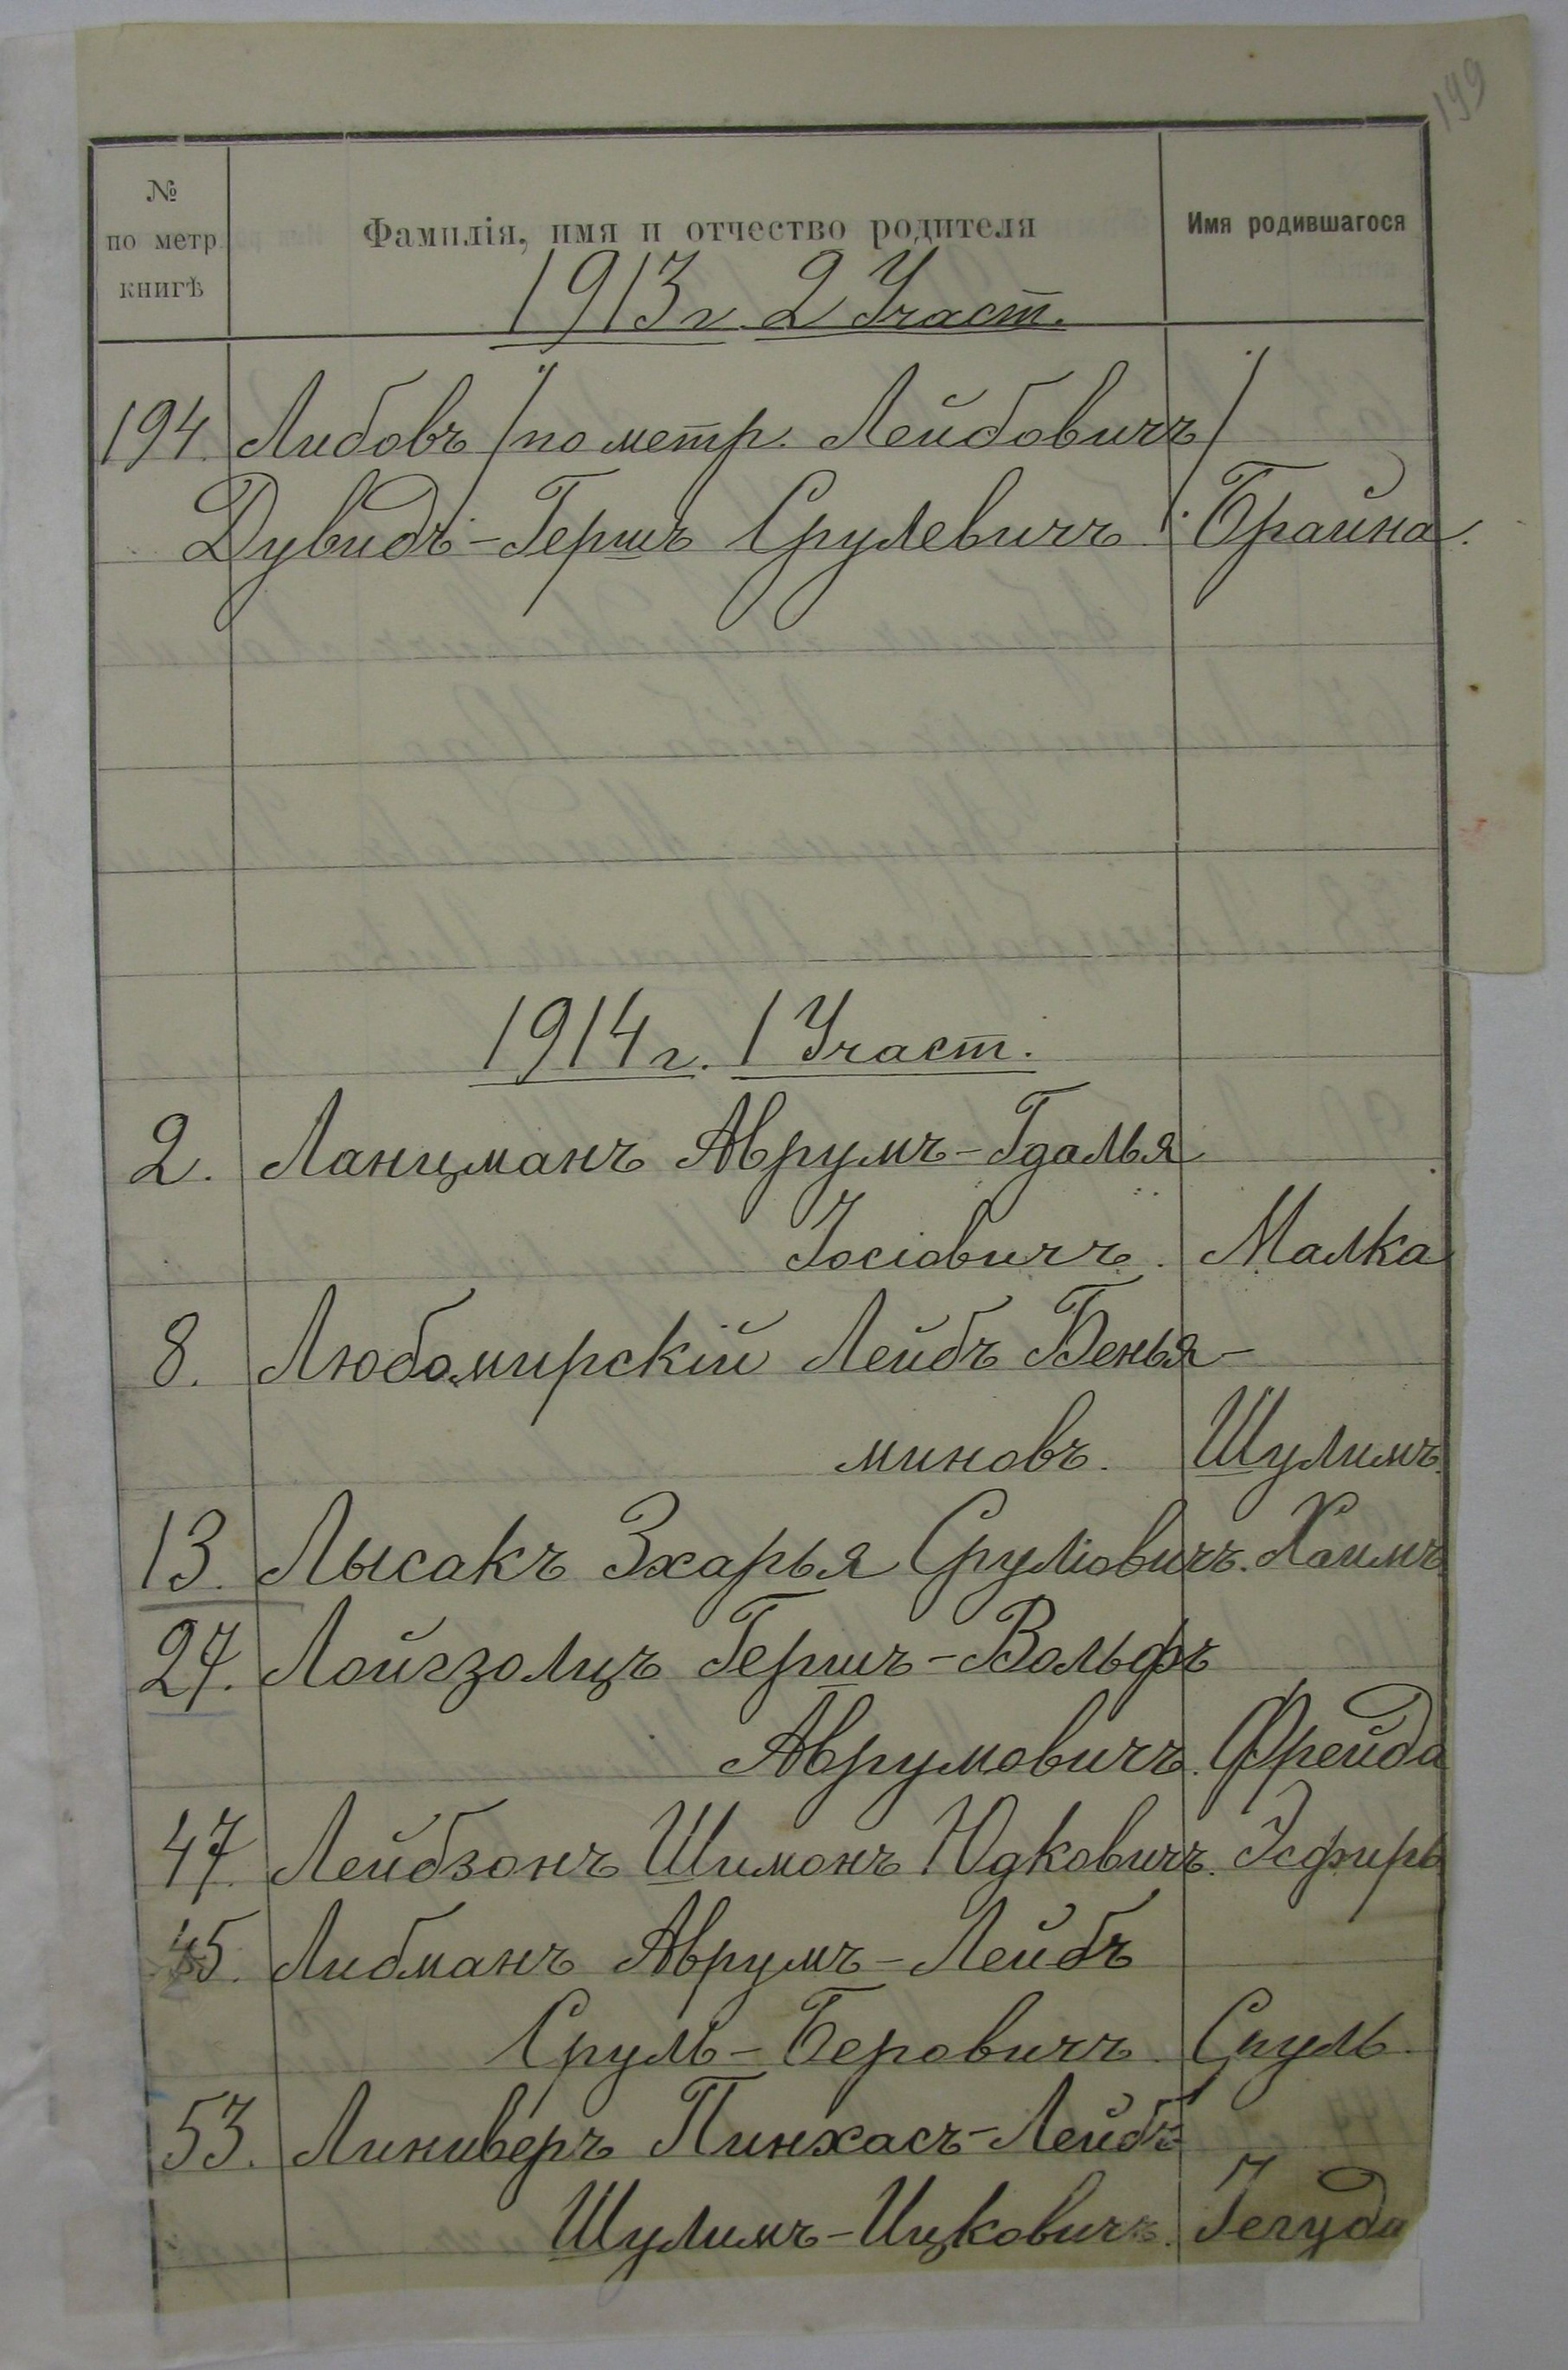 199
№
по метр.
книгѣ
Фамилія, имя и отчество родителя
Имя родившагося
1913 г. 2 Участ.
194. Либовъ /по метр. Лейбовичъ/
Дувидъ-Гершъ Срулевичъ. Брайна.
1914 г. 1 Участ.
2. Ланцманъ Аврумъ-Гдалья
Іосіовичъ. Малка
8. Любомирскій Лейбъ Бенья-
миновъ. Шулимъ
13. Лысакъ Зхарья Сруліовичъ. Хаимъ
27. Лойгзолцъ Гершъ-Вольфъ
Аврумовичъ. Фрейда
47. Лейбзонъ Шимонъ Юдковичъ. Эсфирь
45. Либманъ Аврумъ-Лейбъ
Сруль-Беровичъ. Сруль.
53. Линиверъ Пинхасъ-Лейбъ
Шулимъ-Ицковичъ. Іегуда